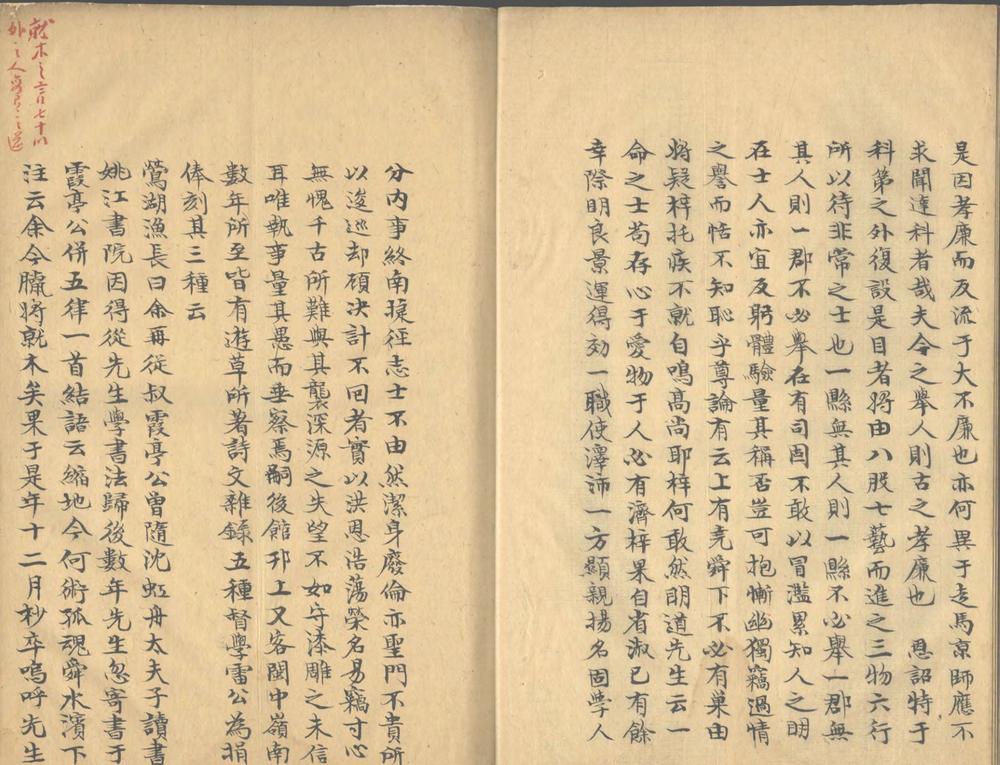 是因孝廉而反流于大不廉也亦何異于走馬京師應不
求聞達科者哉夫今之舉人則古之孝廉也　恩詔特于
科第之外復設是目者將由八股七藝而進之三物六行
所以待非常之士也一縣無其人則一縣不必舉一郡無
其人則一郡不必舉在有司固不敢以冒濫累知人之明
在士人亦宜反躬體驗量其稱否豈可抱慚幽獨竊過情
之譽而恬不知恥乎尊論有云上有堯舜下不必有巢由
將疑梓托疾不就自鳴高尚耶梓何敢然明道先生云一
命之士苟存心于愛物于人必有濟梓果自省淑已有餘
幸際明良景運得効一職使澤沛一方顯親揚名固學人
分内事終南捷徑志士不由然潔身廢倫亦聖門不貴所
以逡巡却顧决計不回者實以洪恩浩蕩榮名易竊寸心
無愧千古所難與其襲深源之失望不如守漆雕之未信
耳唯執事量其愚而垂察焉嗣後館邗上又客閩中嶺南
數年所至皆有遊草所著詩文雜錄五種督學雷公為捐
俸刻其三種云
鶯湖漁長曰余再從叔霞亭公曾隨沈虹舟太夫子讀書
姚江書院因得從先生學書法歸後數年先生忽寄書于
霞亭公併五律一首結語云縮地今何術孤魂舜水濱下
注云余今臘將就木矣果于是年十二月杪卒嗚呼先生
就木之言七十以
外之人